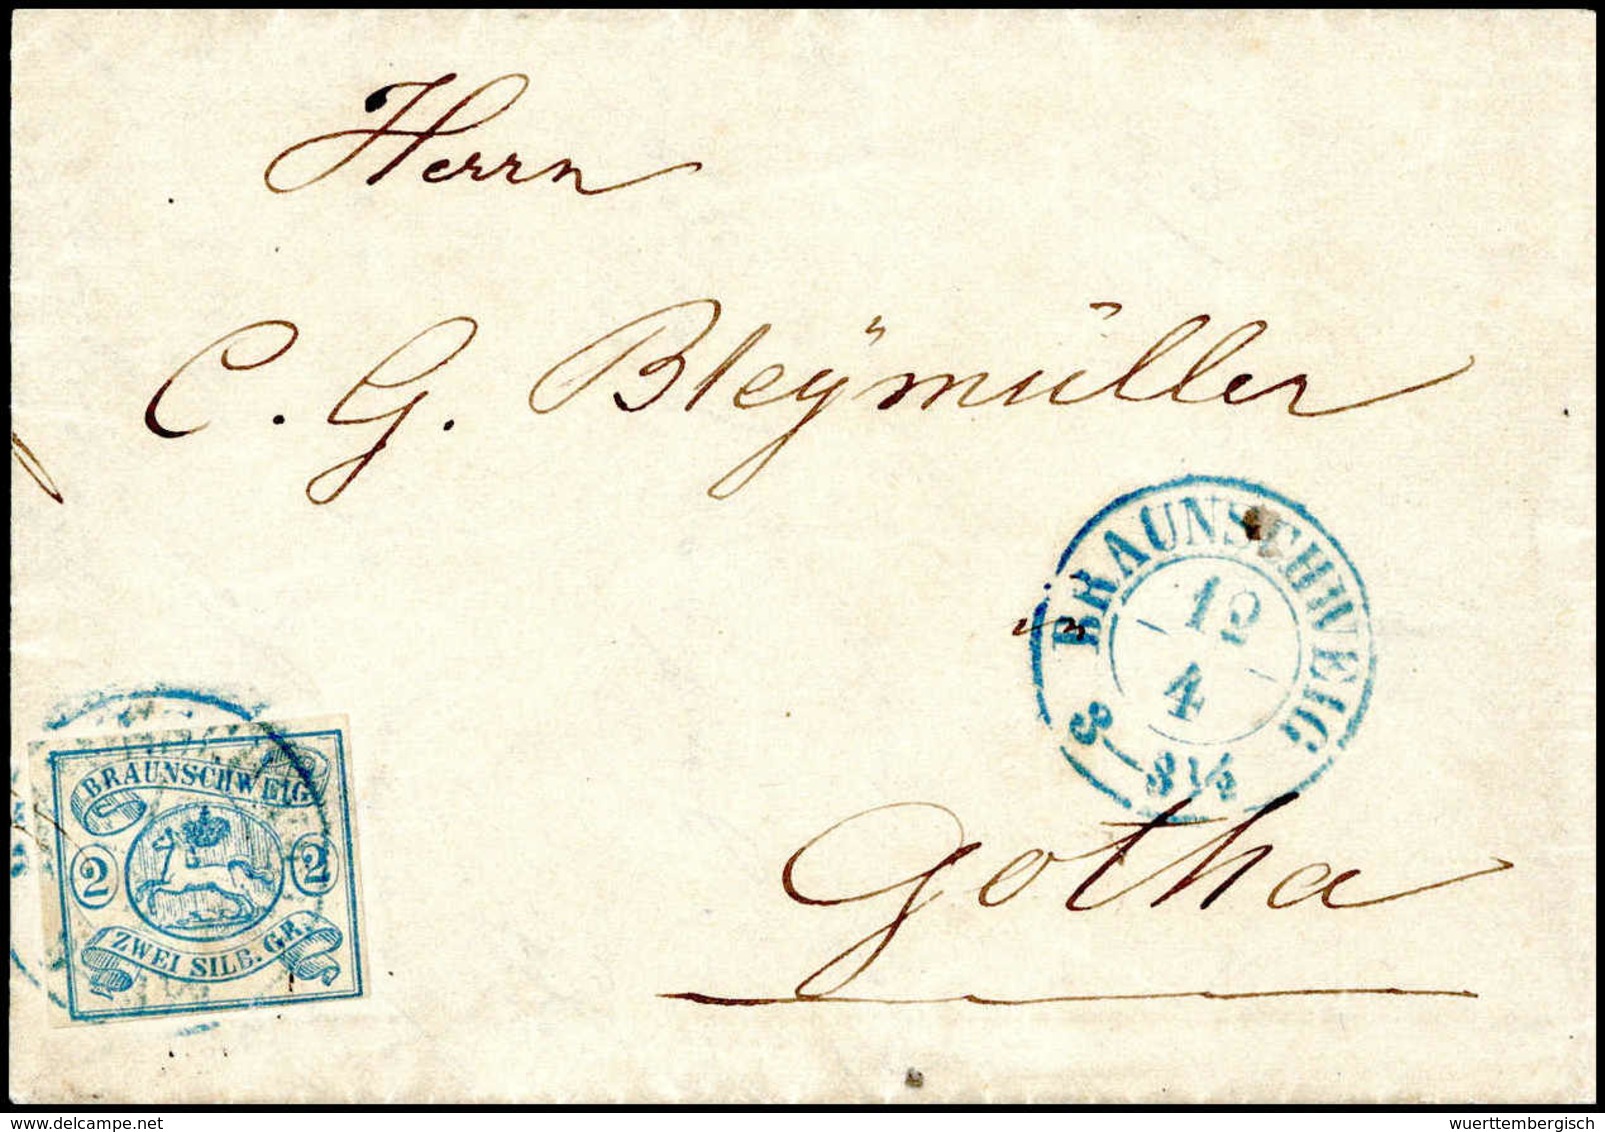 Herrn
C. G. Bleÿmüller
BRAUNSCHWEIG
12
4
3—3½
in
Gotha
BRAUNSCHWEIG
2 2
ZWEI SILB. GR.
www.delcampe.net
wuerttembergisch